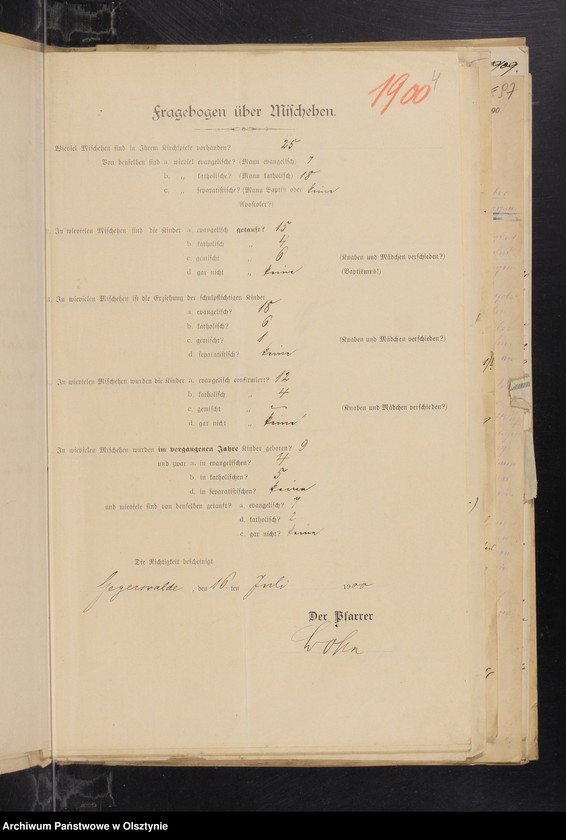 1900
4
Fragebogen über Mischehen.
Wieviel Mischehen sind in Ihrem Kirchspiele vorhanden? 25
Von denselben sind a. wieviel evangelische? (Mann evangelisch) 7
b. „ katholische? (Mann katholisch) 18
c „ separatistische? (Mann Baptist oder keine
Apostaler?)
In wievielen Mischehen sind die Kinder a. evangelisch getauft? 15
b. katholisch „ 4
c. gemischt „ 6 (Knaben und Mädchen verschieden?)
d. gar nicht „ keine (Baptismus!)
In wievielen Mischehen ist die Erziehung der schulpflichtigen Kinder
a. evangelisch? 18
b. katholisch? 6
c. gemischt? 1 (Knaben und Mädchen verschieden?)
d. separatistisch? keine
In wievielen Mischehen wurden die Kinder a. evangelisch confirmirt? 12
b. katholisch „ 4
c. gemischt „ – (Knaben und Mädchen verschieden?)
d. gar nicht „ keine
In wievielen Mischehen wurden im vergangenen Jahre Kinder geboren? 9
und zwar a. in evangelischen? 4
b in katholischen? 5
d. in separatistischen? keine
und wieviele sind von denselben getauft? a. evangelisch? 7
d. katholisch? 2
c. gar nicht? keine
Die Richtigkeit bescheinigt
Geyerswalde, den 16 ten Juli 1900
Der Pfarrer
1909.
97
90.
Archiwum Państwowe w Olsztynie